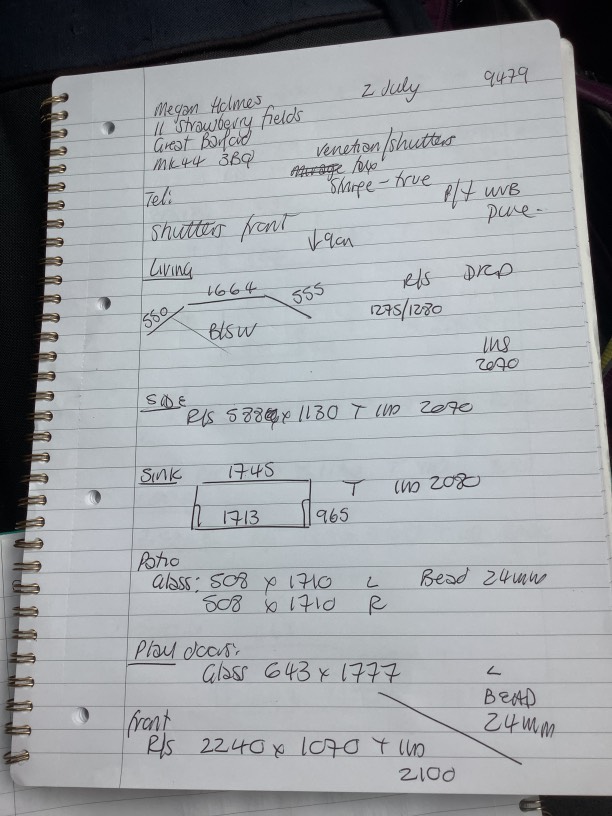 Megan Holmes 2 July 9479
11 Strawberry fields
Great Barford
MK44 3BQ Venetian/shutters
Shape - true P/T WVB
Tel: Pure.
Shutters front
↓ 9an
Living R/S DROP
550 1664 555 1275/1280
B/SW
INS
2070
SIDE
R/S 588 x 1130 T INS 2070
Sink 1745 T INS 2080
1713 965
Patio
Glass: 508 x 1710 L Bead 24mm
508 x 1710 R
Play doors:
Glass 643 x 1777 L
BEAD
24mm
front
R/S 2240 x 1070 T INS
2100